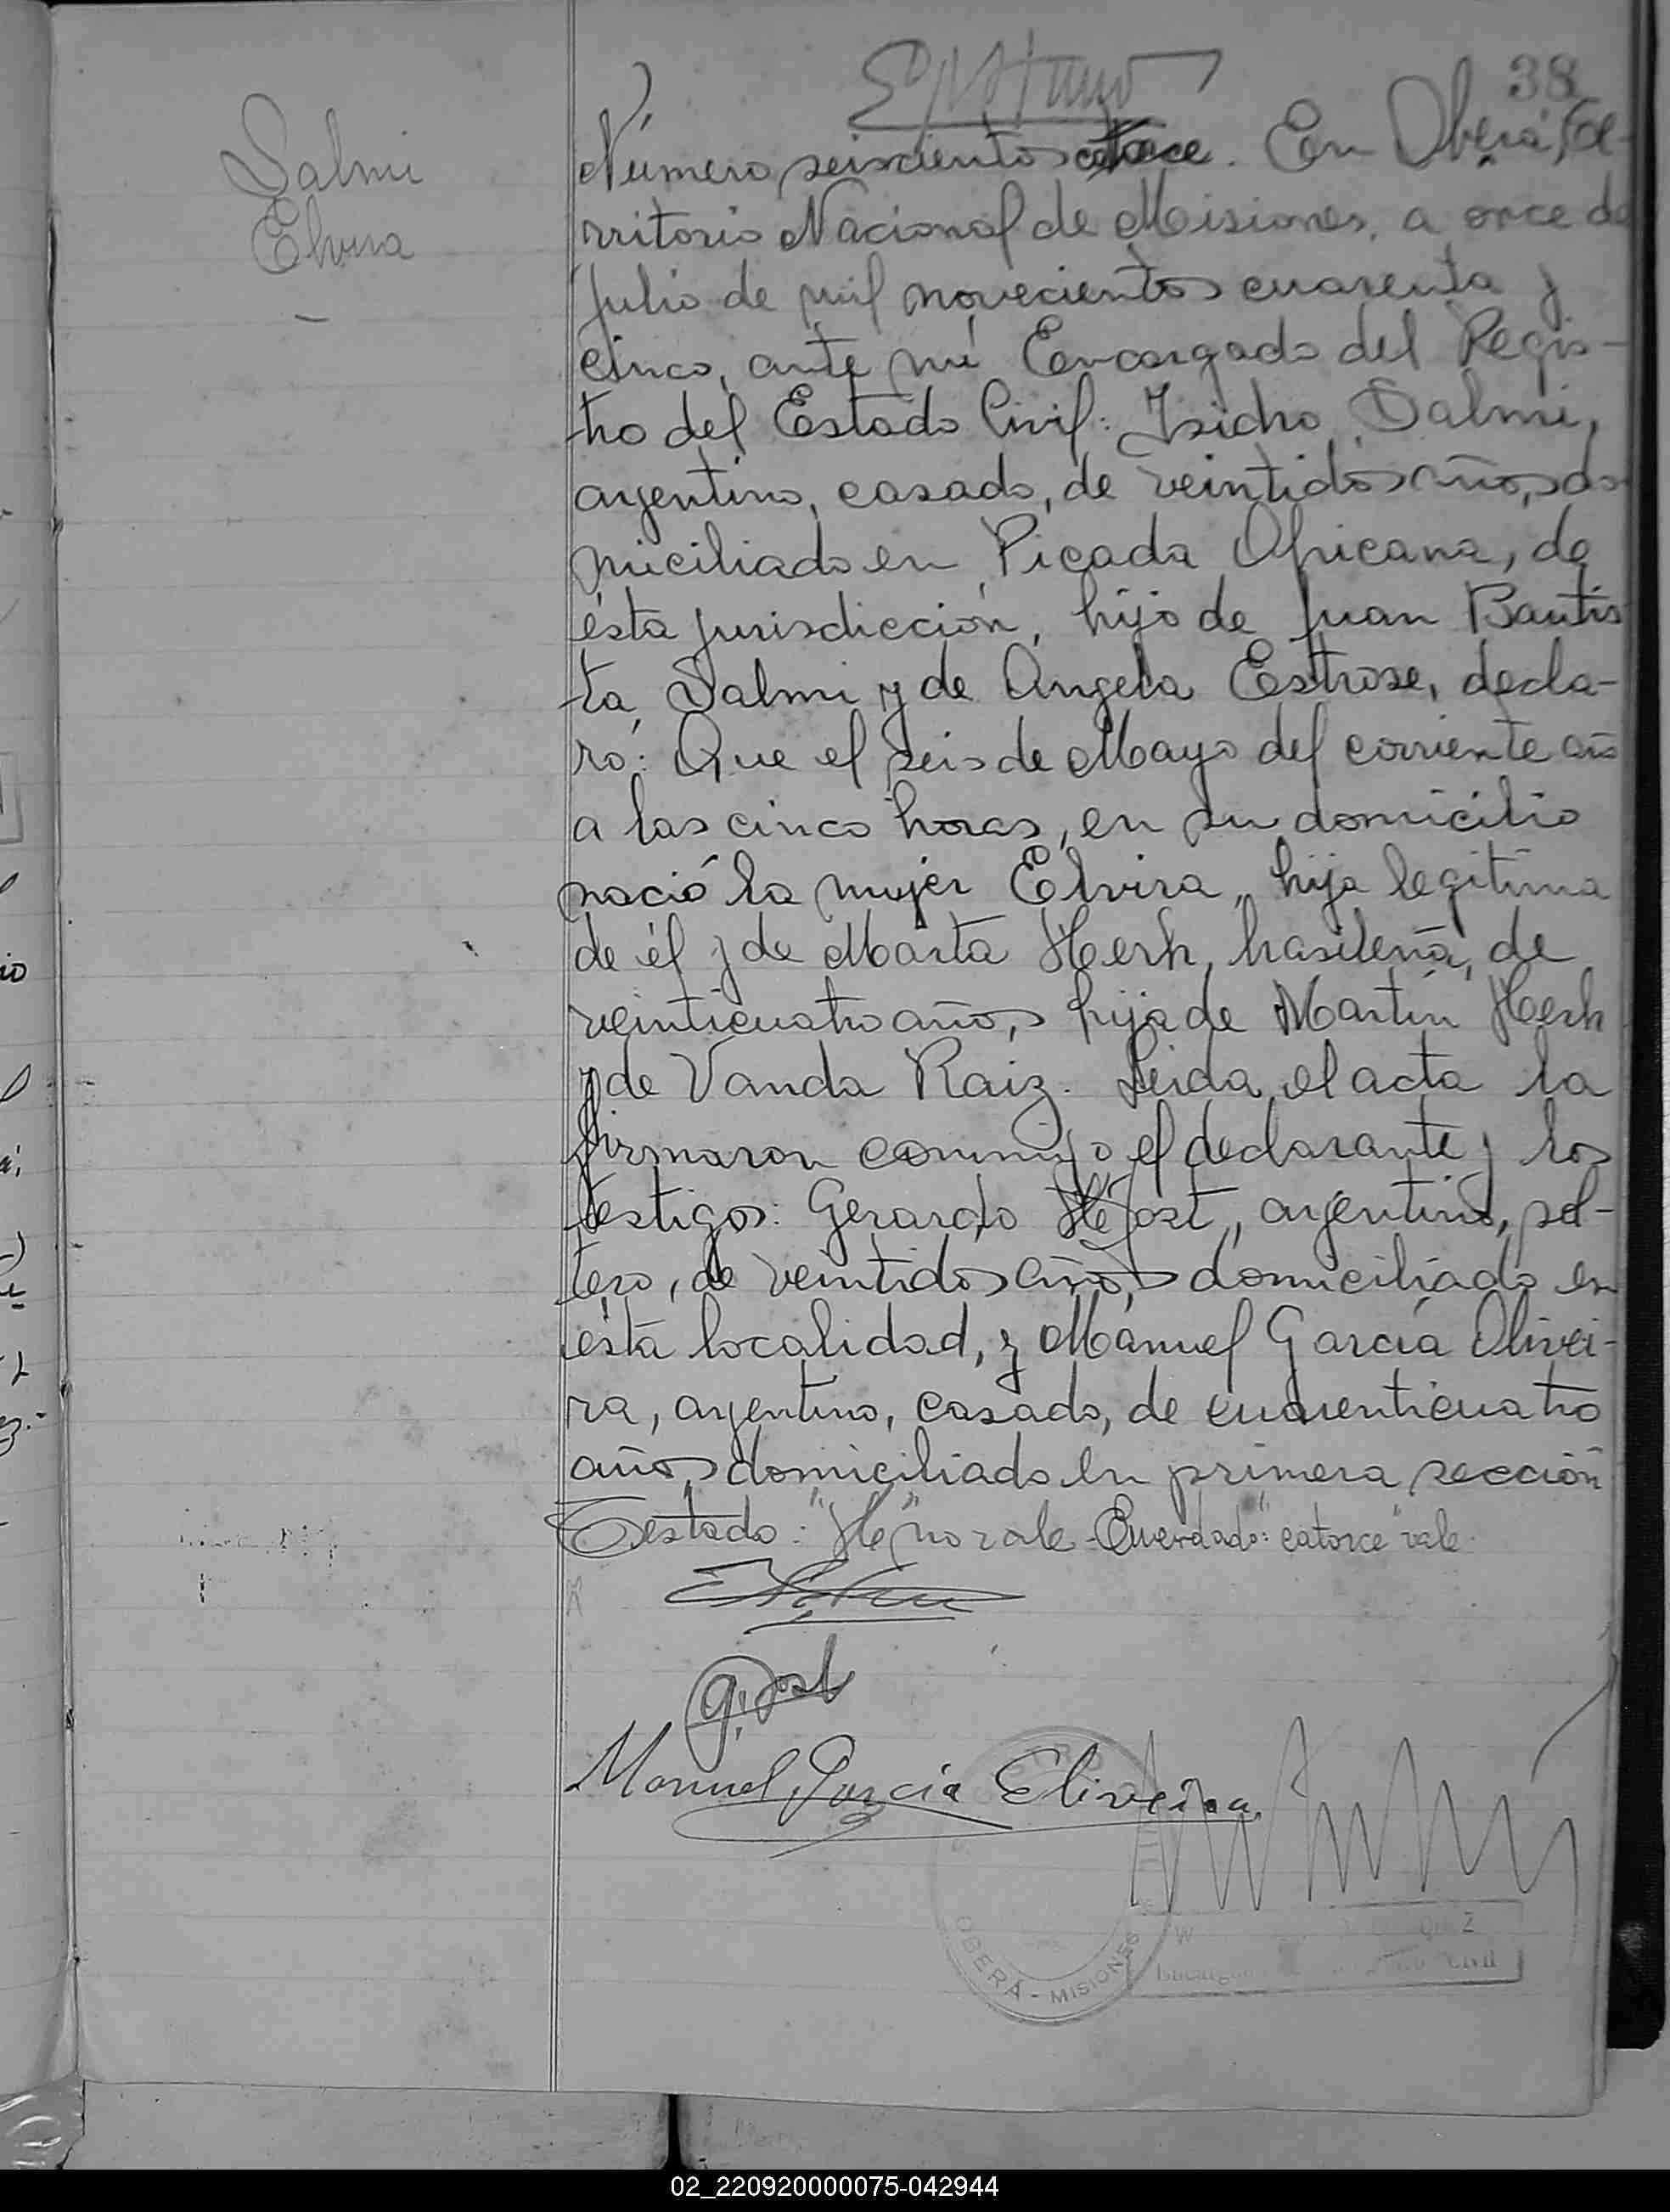 38
Salmi
Elvira
Número seiscientos catorce. En Oberá, Te-
rritorio Nacional de Misiones, a once de
Julio de mil novecientos cuarenta y
cinco, ante mí Encargado del Regis-
tro del Estado Civil: Isidro Salmi,
argentino, casado, de veintidos años, do-
miciliado en Picada Africana, de
ésta jurisdicción, hijo de Juan Bautis-
ta Salmi y de Angela Estrose, decla-
ró: Que el seis de Mayo del corriente año
a las cinco horas, en su domicilio
nació la mujer Elvira, hija legítima
de él y de Marta Herh, brasileña, de
veinticuatro años, hija de Martín Herh
y de Vanda Raiz. Leida el acta la
firmaron conmigo el declarante y los
testigos: Gerardo He Jost, argentino, sol-
tero, de veintidos años, domiciliado en
ésta localidad, y Manuel García Olivei-
ra, argentino, casado, de cuarenticuatro
años, domiciliado en primera sección
Testado: "He" no vale - Enmendado: "catorce" vale.
G. Jost
Manuel García Oliveira
OBERÁ - MISIONES
02_220920000075-042944